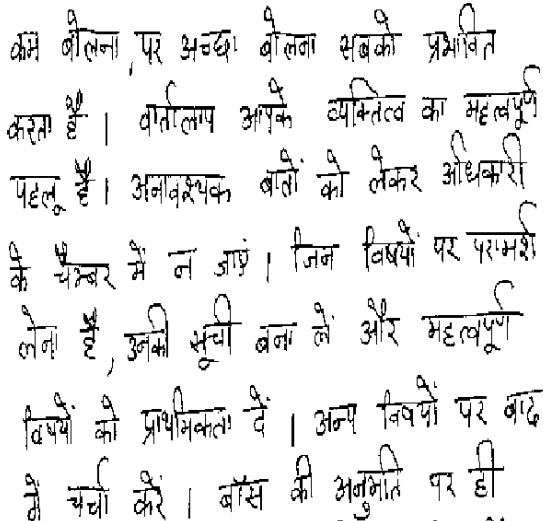 कम बोलना, पर अच्छा बोलना सबको प्रभावित
करता है । वार्तालाप आपके व्यक्तित्व का महत्वपूर्ण
पहलू है । अनावश्यक बातों को लेकर अधिकारी
के चैम्बर में न जाएं । जिन विषयों पर परामर्श
लेना है, उनकी सूची बना लें और महत्वपूर्ण
विषयों को प्राथमिकता दें । अन्य विषयों पर बाद
में चर्चा करें । बॉस की अनुमति पर ही